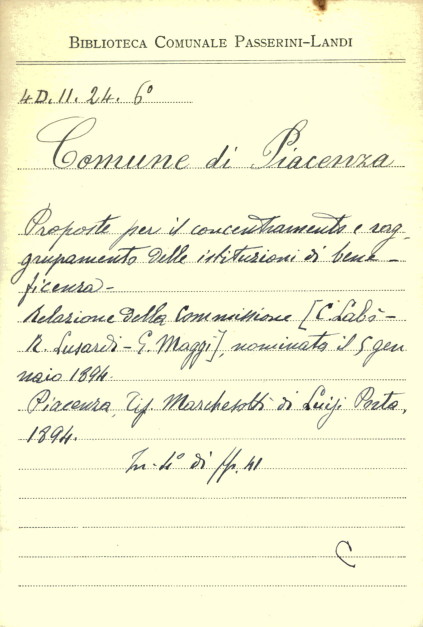 BIBLIOTECA COMUNALE PASSERINI-LANDI
4D.11.24.6°
Comune di Piacenza
Proposte per il concentramento e rag-
grupamento delle istituzioni di bene-
ficenza-
Relazione della Commissione [C. Labò-
R. Lusardi - G. Maggi], nominata il 5 gen
naio 1894.
Piacenza, Tip. Marchesotti di Luigi Porta,
1894.
In-4° di pp. 41
C